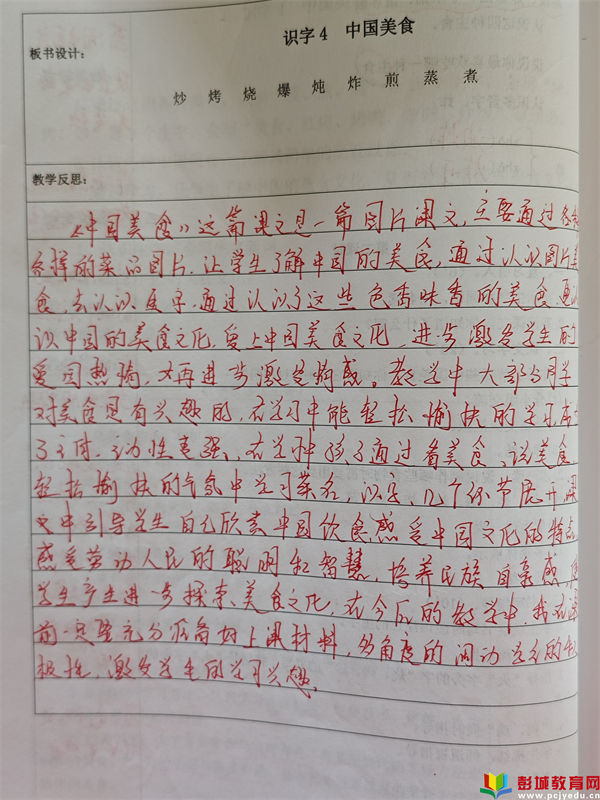 识字4 中国美食
板书设计：
炒 烤 烧 爆 炖 炸 煎 蒸 煮
教学反思：
《中国美食》这篇课文是一篇图片课文，主要通过各种
各样的菜品图片，让学生了解中国的美食，通过认识图片美
食，去认识生字，通过认识了这些色香味香的美食
识中国的美食文化，爱上中国美食文化，进步激发学生的
爱国热情，才再进步激发情感。教学中大部分同学
对美食是有兴趣的，在学习中能轻松愉快的学习
了主体，主动性青强、在学中孩子通过看美食、说美食
轻松愉快的气氛中学习菜名，识字，几个环节展开课
文中引导学生自己欣赏中国饮食感受中国文化的特点
感受劳动人民的聪明和智慧，培养民族自豪感，使
学生产生进一步探索美食文化，在今后的教学中，我在课
前一定要充分准备好上课材料，多角度的调动学生的积
极性，激发学生的学习兴趣。
彭城教育网
www.pcjyedu.cn